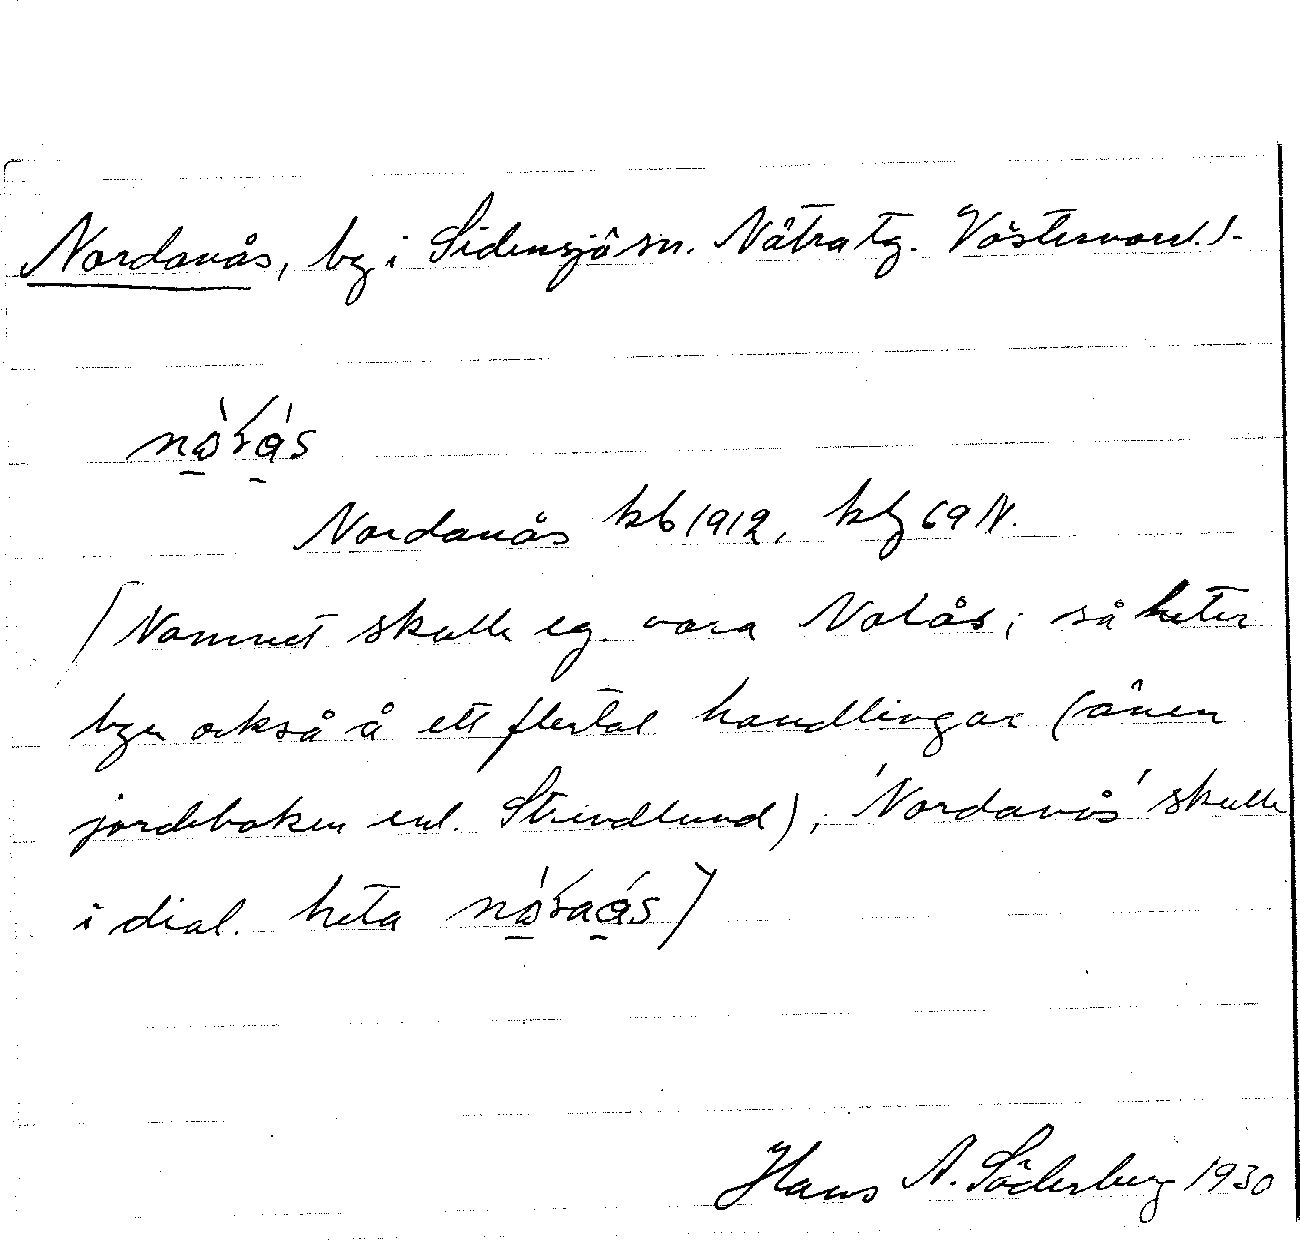 Nordanås, by i Sidensjö sn. Nätra tg. Västernorrl. l.
Nordanås kb 1912, kbg 69 N.
/Namnet skulle eg. vara Nolås; så heter
byn också å ett flertal handlingar (även
jordeboken enl. Strindlund), 'Nordanås' skulle
i dial. heta
Hans A. Söderberg 1930